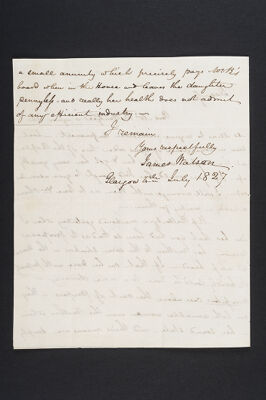 a small annuity which precisely pays
board when in the House and leaves the daughter
pennyless and really her health does not admit
of any efficient industry
I remain
Yours respectfully
James Watson
Glasgow July 1827